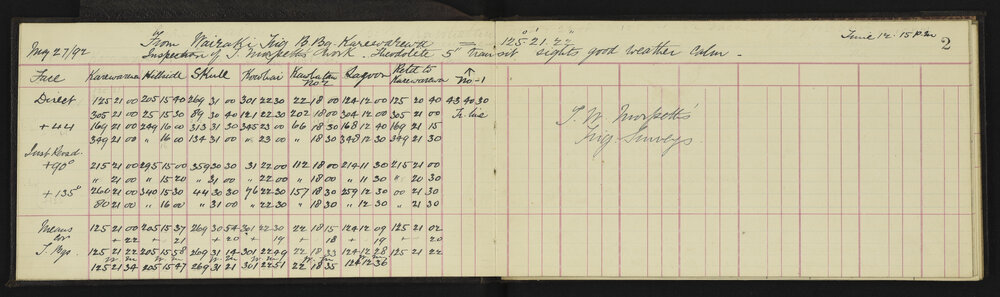 May 27/92 From Wairaki Trig B. Bg. Karewarewa = 125° 21' 22" Time 12.15 P.m 2
Inspection of T. Morpeth's Work. Theodolite 5" transit sights good weather calm.
Face Karewarewa Hillside Skull Kowhai No 2 Lagoon Retd to Karewarewa No-1
Direct 125 21 00 205 15 40 269 31 00 301 22 30 22 18 00 124 12 00 125 20 40 43 40 30
305 21 00 25 15 30 89 30 40 121 22 30 202 18 00 304 12 00 305 21 00
+44 169 21 00 249 16 00 313 31 30 345 23 00 66 18 30 168 12 40 169 21 15
349 21 00 " 16 00 134 31 00 " 23 00 " 18 30 348 12 30 349 21 30
+90° 215 21 00 295 15 00 359 30 30 31 22 00 112 18 00 214 11 30 215 21 00
" 21 00 " 15 20 " 31 00 " 22 00 " 18 00 " 11 30 " 20 30
+135° 260 21 00 340 15 30 44 30 30 76 22 30 157 18 30 259 12 30 00 21 30
80 21 00 " 16 00 " 31 00 " 22 30 " 18 30 " 12 30 " 21 30
Means 125 21 00 205 15 37 269 30 54 301 22 30 22 18 15 124 12 09 125 21 02
+ 22 + 21 + 20 + 19 + 18 + 19 + 20
T. Bgs. 125 21 22 205 15 58 269 31 14 301 22 49 22 18 33 124 12 28 125 21 22
125 21 34 205 15 47 269 31 21 301 22 51 22 18 35 124 12 36
T. W. Morpeth's
Trig-Surveys